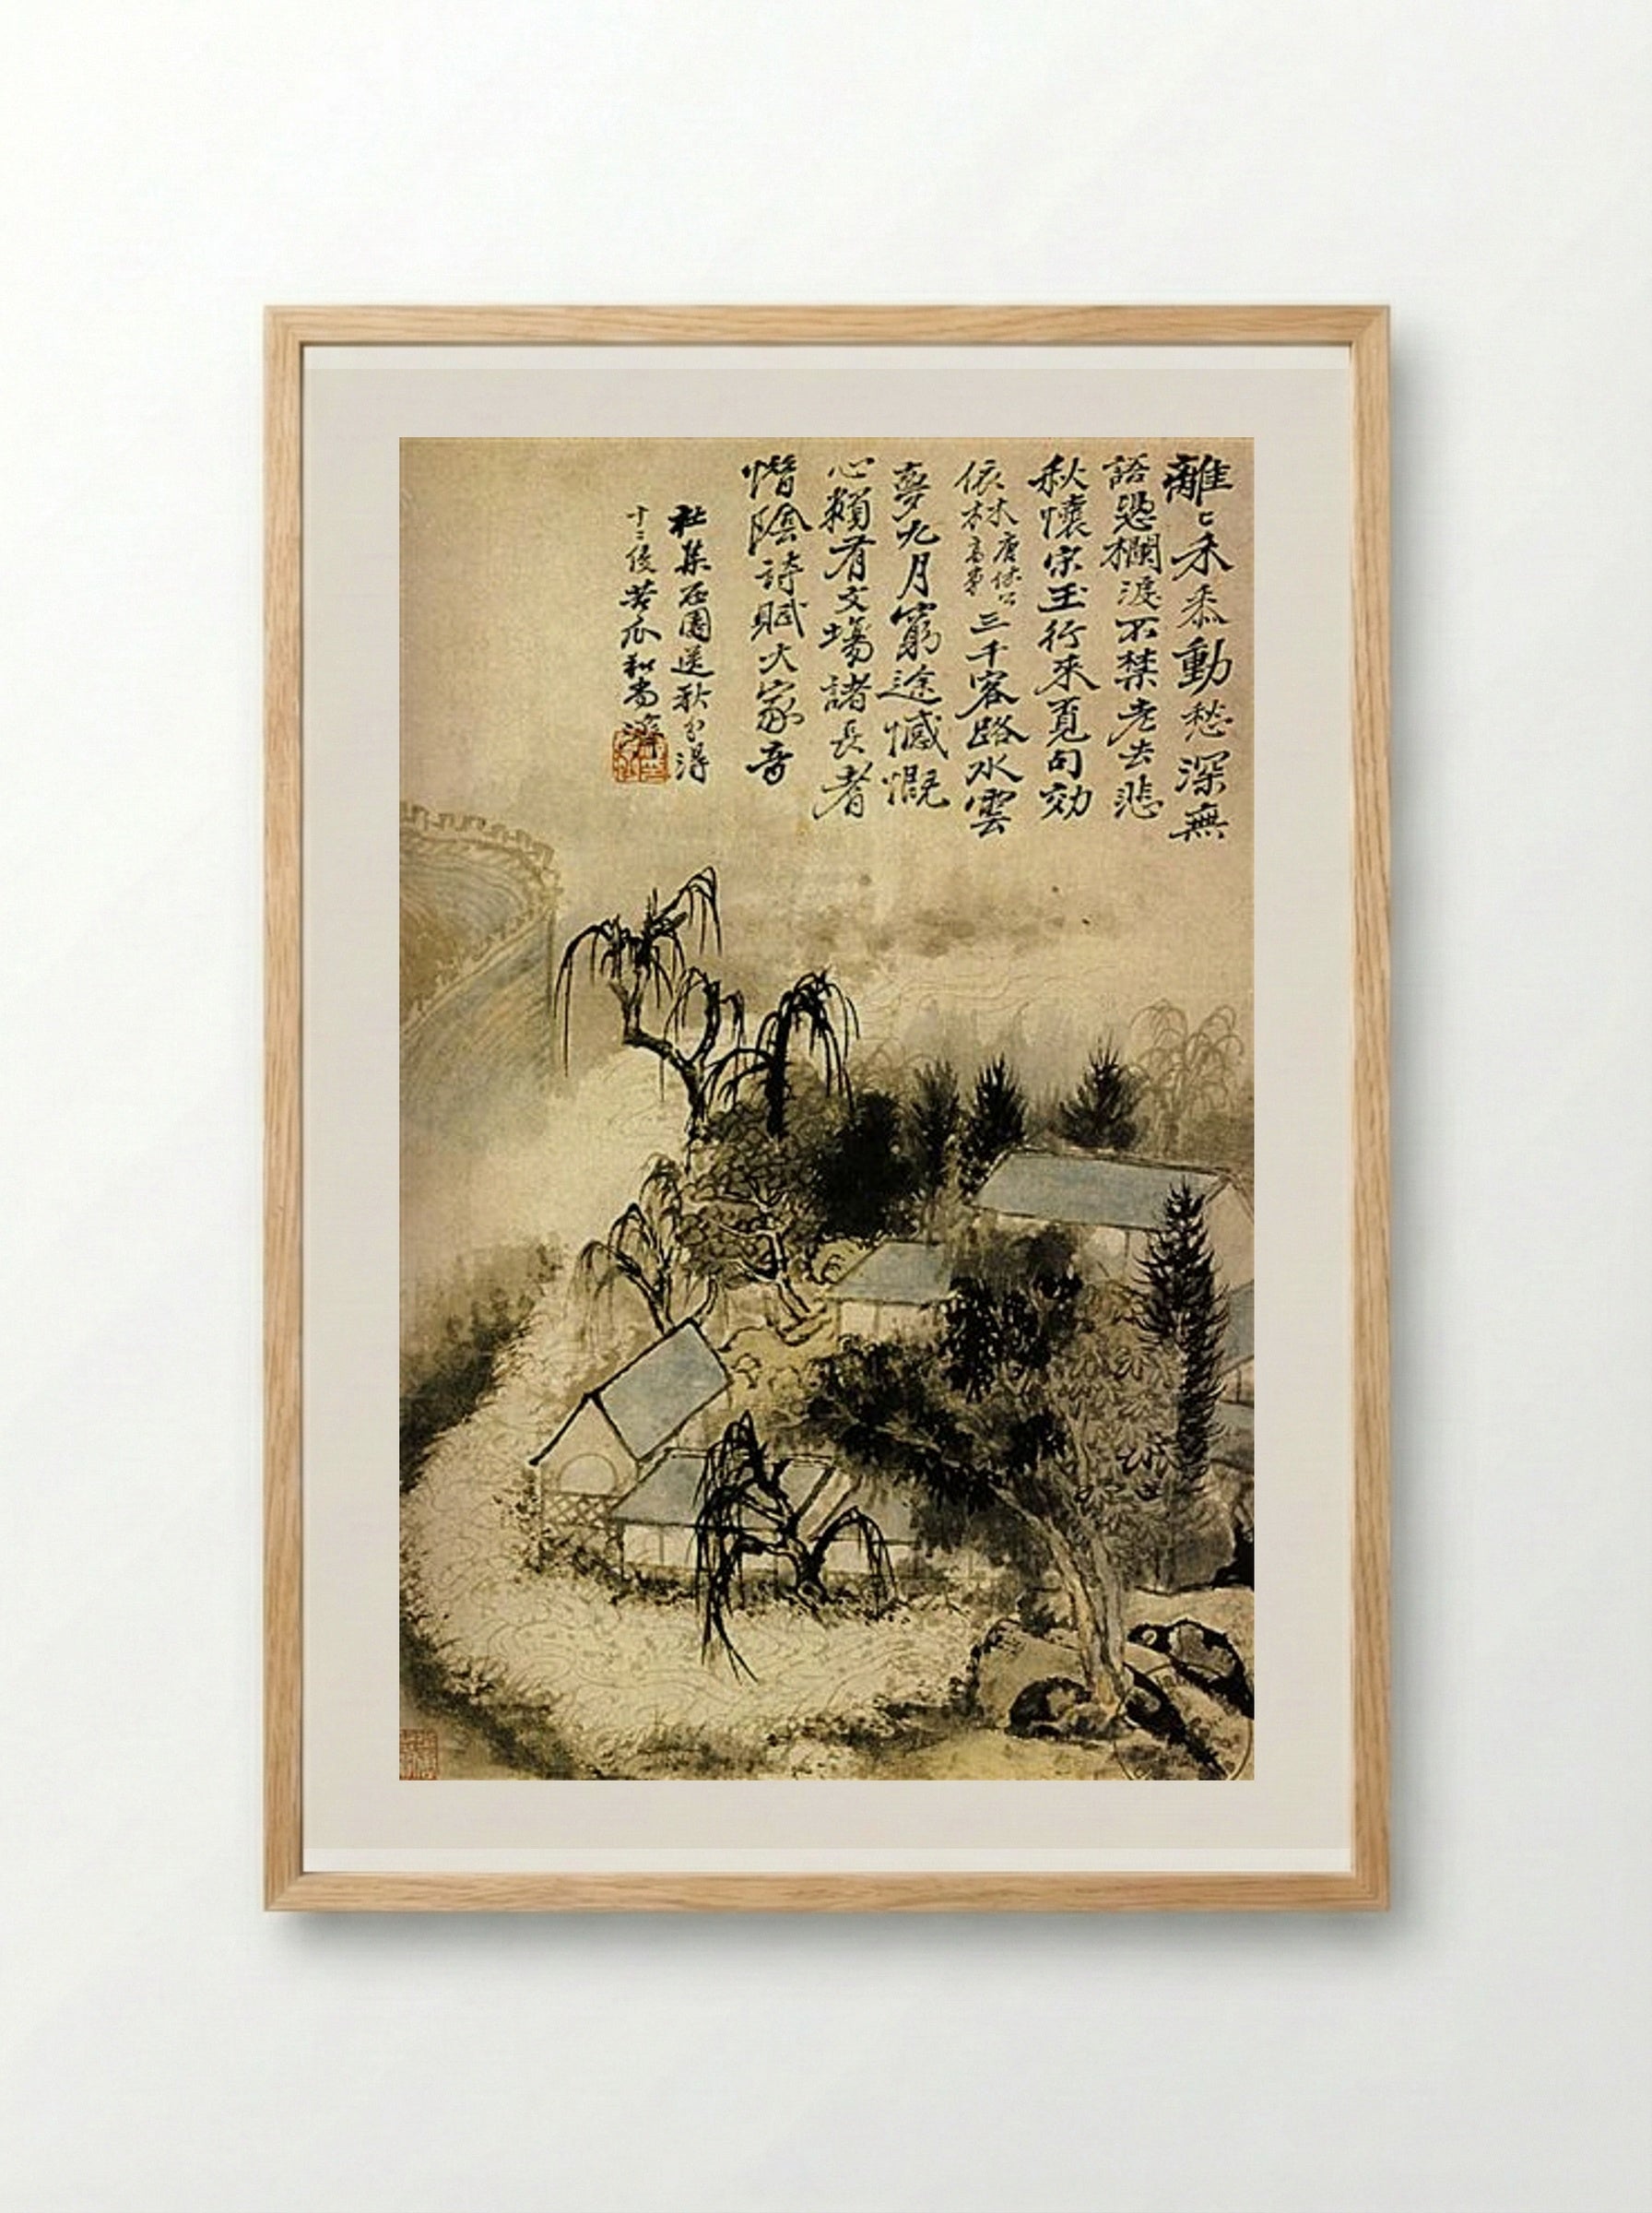 離〻禾黍動愁深無
語憑欄淚不禁老去悲
秋懷宋玉行來覓句効
依 三千客路水雲
夢九月窮途感慨
心賴有文場諸長者
惜陰詩賦大家音
社集 園送秋分得
十二侵苦瓜和尚濟